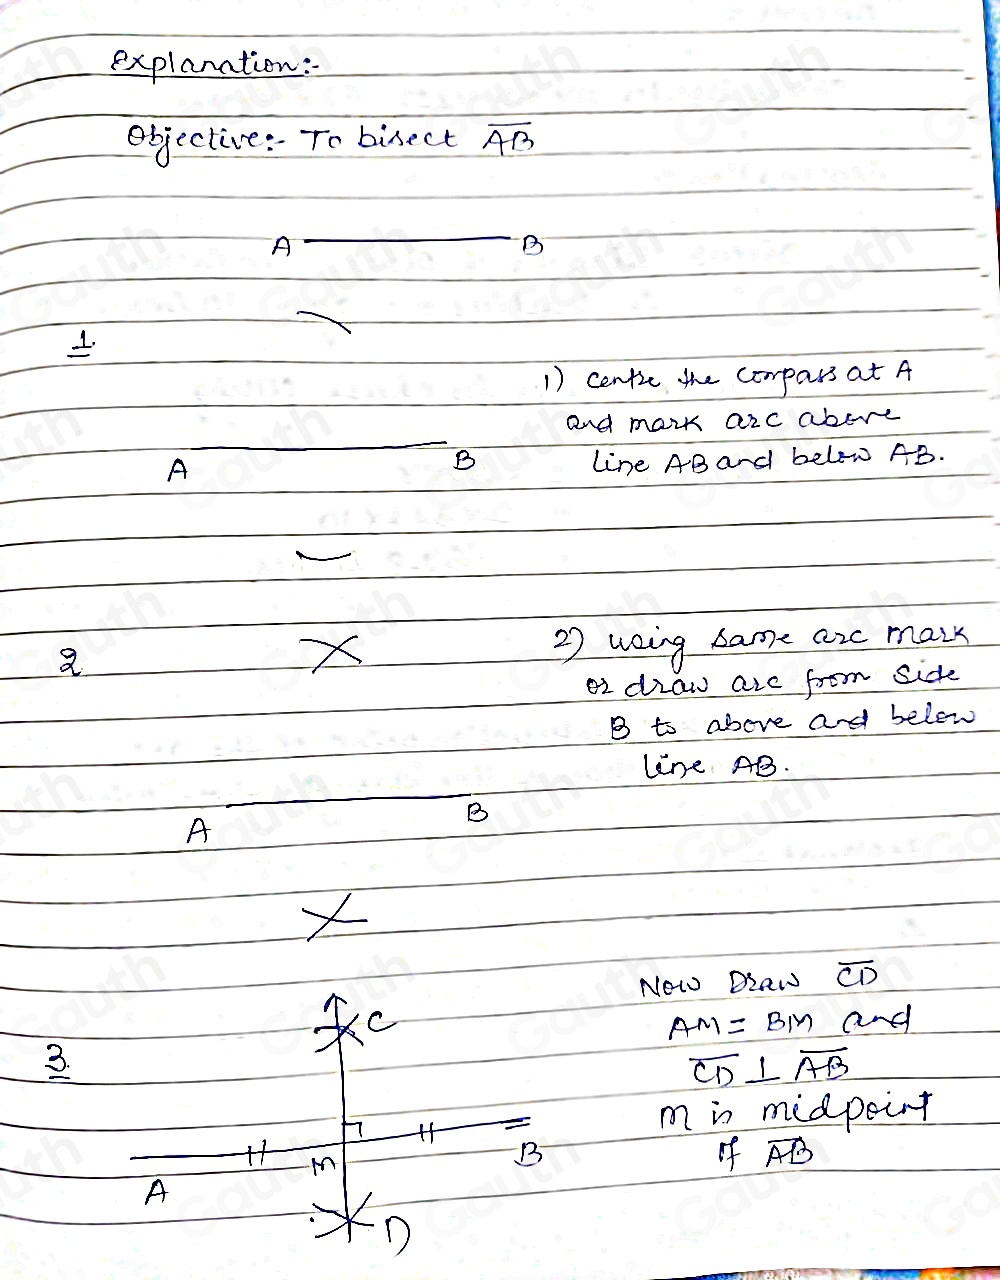 Explanation:-
Objective:- To bisect AB
A B
1.
1) Centre the compass at A
and mark arc above
line AB and below AB.
A B
2
2) using same arc mark
or draw arc from side
B to above and below
line AB.
A B
3.
Now Draw CD
AM = BM and
CD ⊥ AB
M is midpoint
of AB
C
A M B
D
Gauth